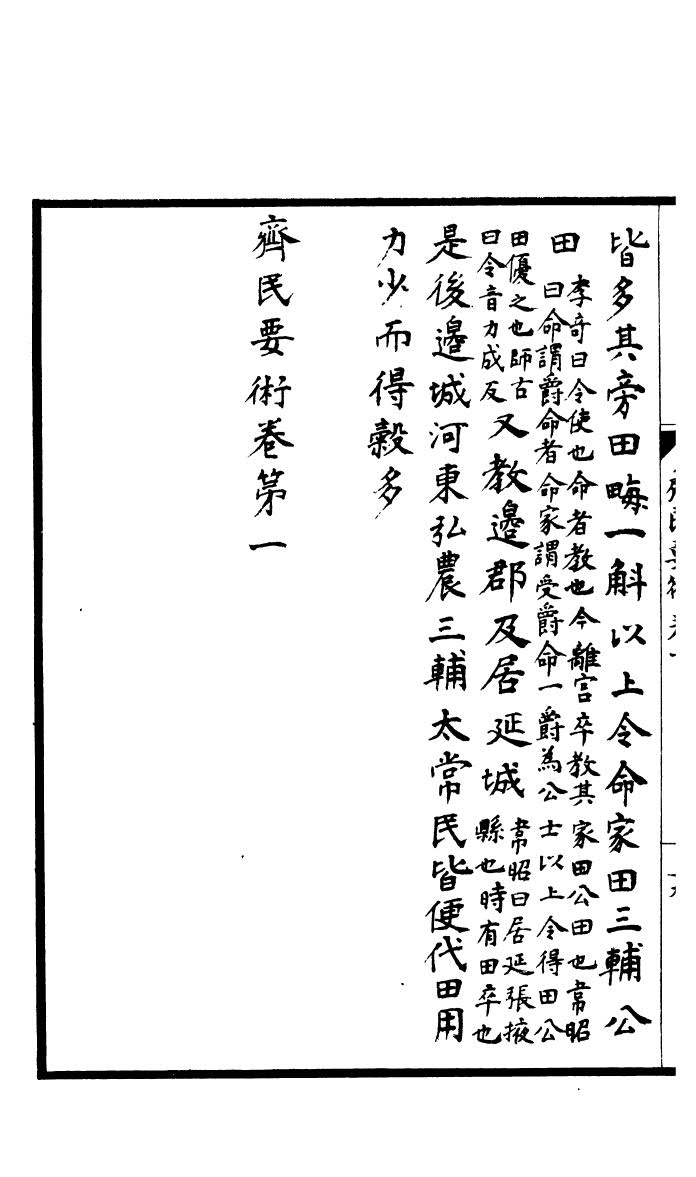 皆多其旁田畮一斛以上令命家田三輔公
田
李奇曰令使也命者教也今離宮卒教其家田公田也韋昭
曰命謂爵命者命家謂受爵命一爵為公士以上令得田公
田優之也師古
曰令音力成反
又教邊郡及居延城
韋昭曰居延張掖
縣也時有田卒也
是後邊城河東弘農三輔太常民皆便代田用
力少而得穀多
齊民要術卷第一